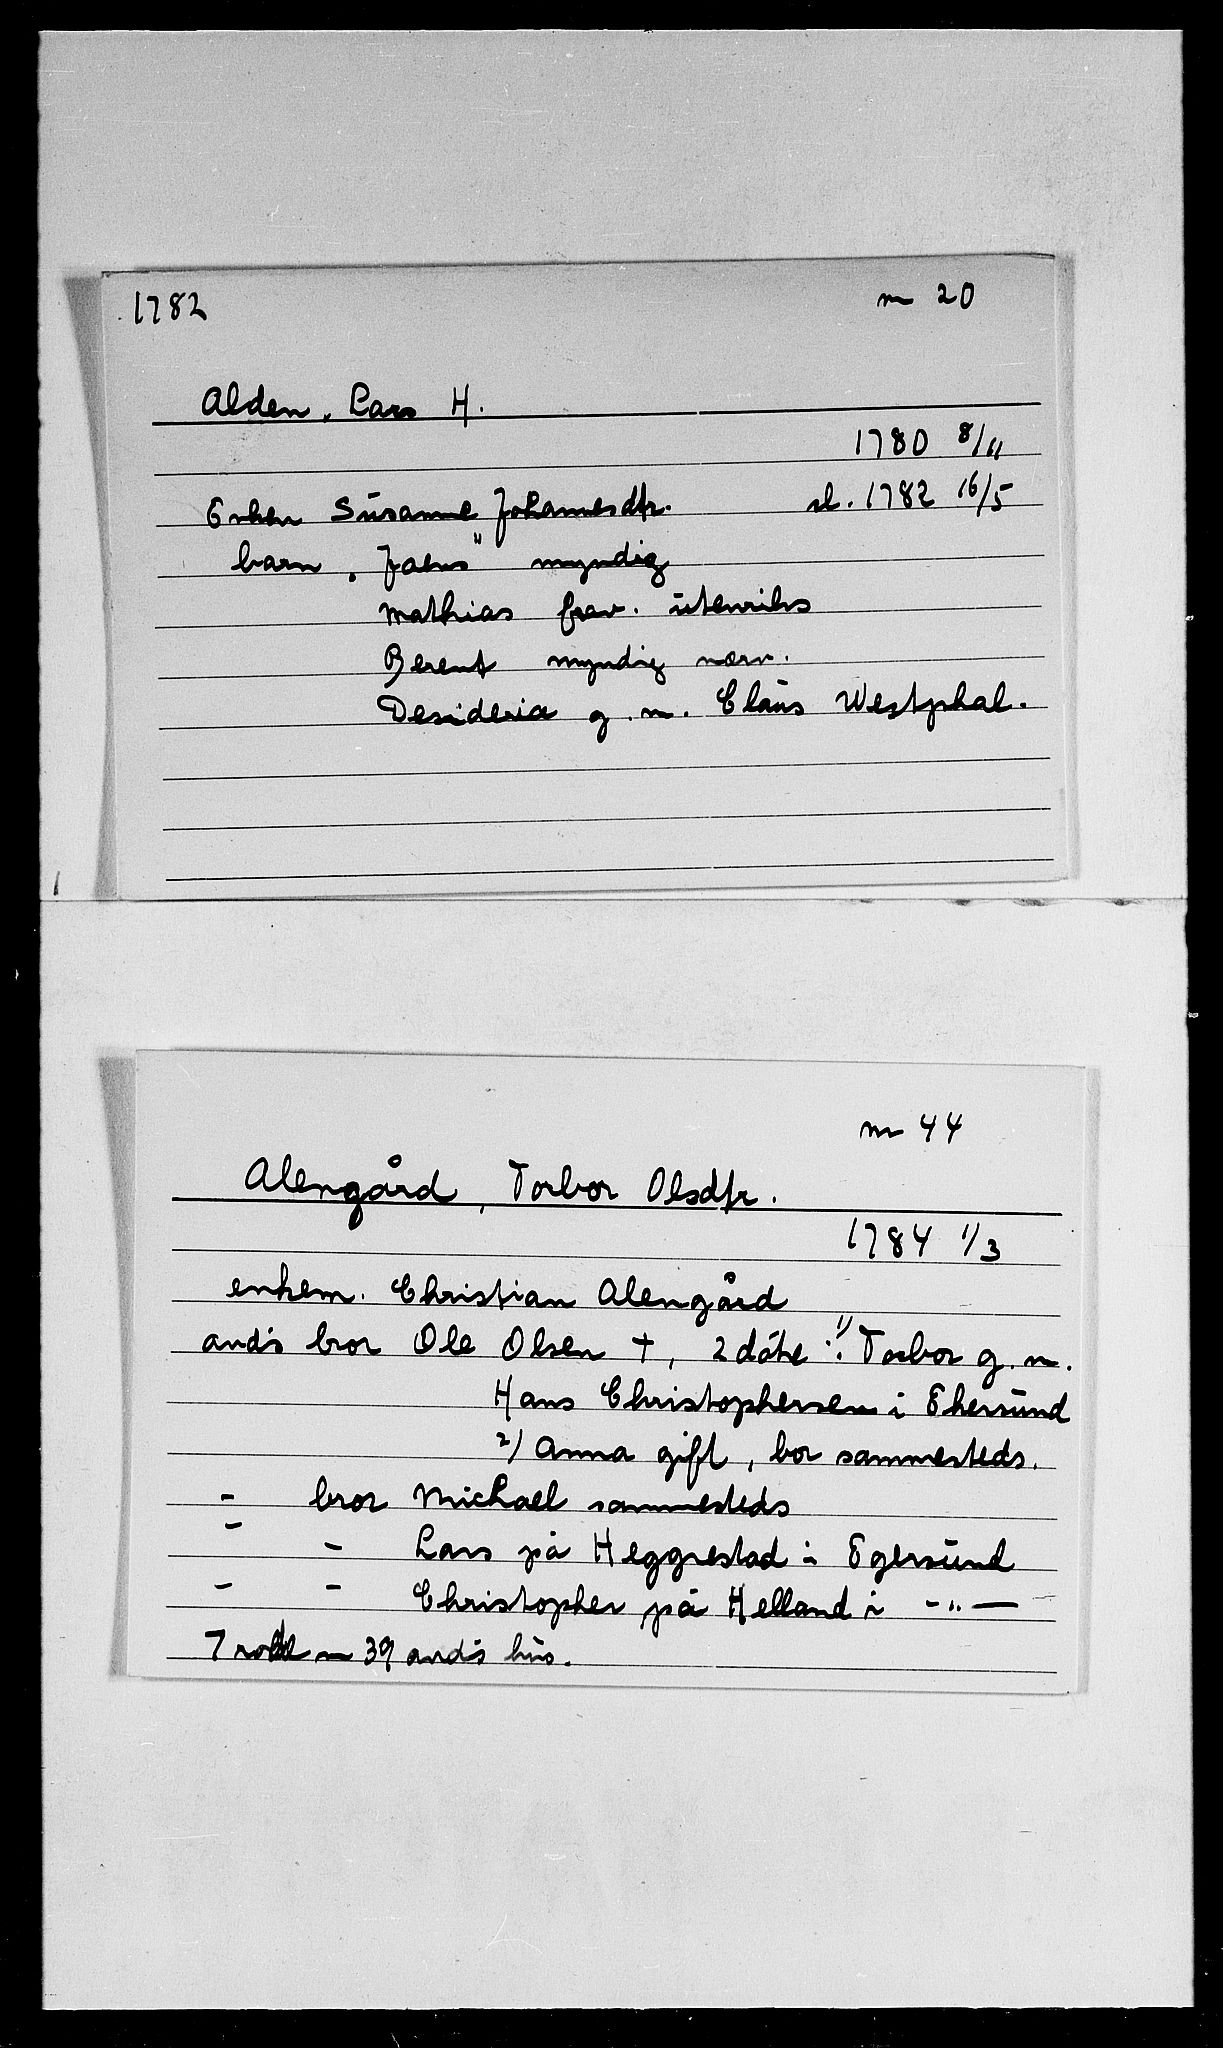 1782 m 20
Alden, Lars H.
1780 8/11
Enken Susanne Johannesdtr. sl. 1782 16/5
barn "Jahns" myndig
Mathias frav. utenriks
Berent myndig nærv.
Desideria g.m. Claus Westphal.
m 44
Alengård, Torbor Olsdtr.
1784 1/3
enkem. Christian Alengård
avd's bror Ole Olsen +, 2 døtre: 1) Torbor g.m.
Hans Christophersen i Ekersund
2) Anna gift, bor sammesteds.
- bror Michael sammesteds
- - Lars på Heggrestad i Egersund
- - Christopher på Helland i -"-
7 rode m 39 avd's hus.